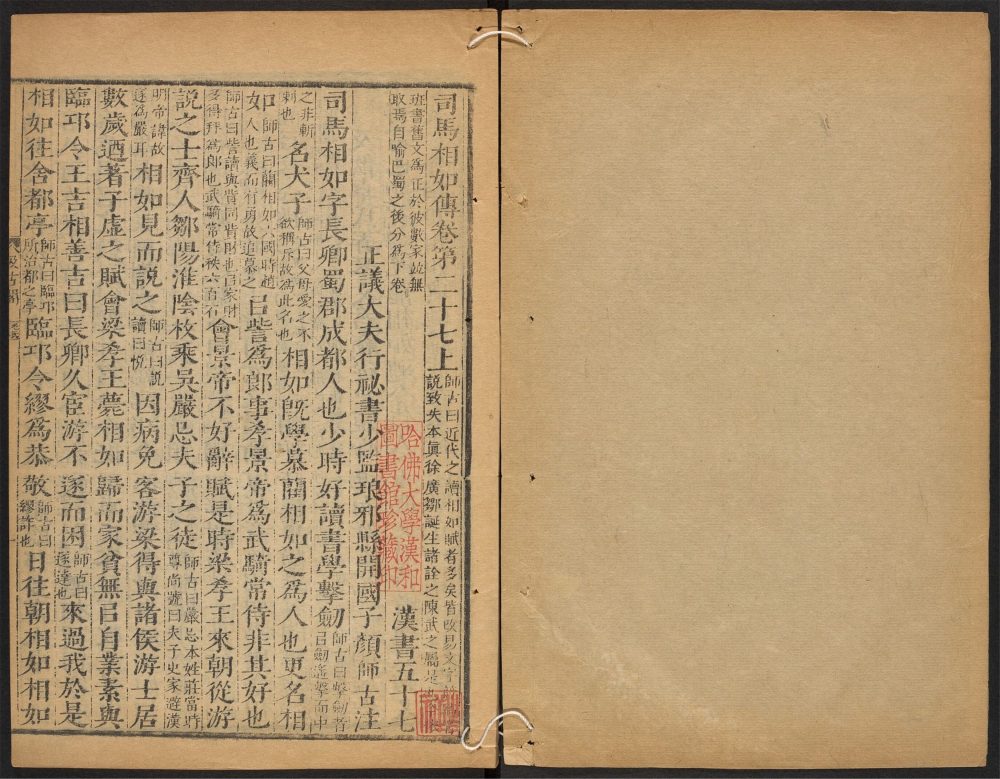 司馬相如傳卷第二十七上 師古曰近代之讀相如賦者多矣皆改易文字
說致失本真徐廣鄒誕生諸詮之陳武之屬是也
班書舊文為正於彼數家竝無
取焉自喻巴蜀之後分為下卷
漢書五十七
正議大夫行祕書少監琅邪縣開國子顏師古注
司馬相如字長卿蜀郡成都人也少時好讀書學擊劒 師古曰擊劒者㠯劒遙擊而中
之非斬刺也 名犬子 師古曰父母愛之不欲稱斥故為此名也 相如旣學慕藺相如之為人也更名相
如 師古曰藺相如六國時趙人也義而有勇故追慕之 㠯訾為郎事孝景帝為武騎常侍非其好也
師古曰訾讀與貲同貲財也㠯家財多得拜為郎也武騎常侍秩六百石 會景帝不好辭賦是時梁孝王來朝從游
說之士齊人鄒陽淮陰枚乘吳嚴忌夫子之徒 師古曰嚴忌本姓莊當時尊尚號曰夫子史家避漢
明帝諱故遂為嚴耳 相如見而說之 師古曰說讀曰悅 因病免客游梁得與諸侯游士居
數歲迺著子虛之賦會梁孝王薨相如歸而家貧無㠯自業素與
臨邛令王吉相善吉曰長卿久宦游不遂而困 師古曰遂達也 來過我於是
相如往舍都亭 師古曰臨邛所治都之亭 臨邛令繆為恭敬 師古曰繆詐也 日往朝相如相如
汲古閣
哈佛大學漢和
圖書館珍藏印